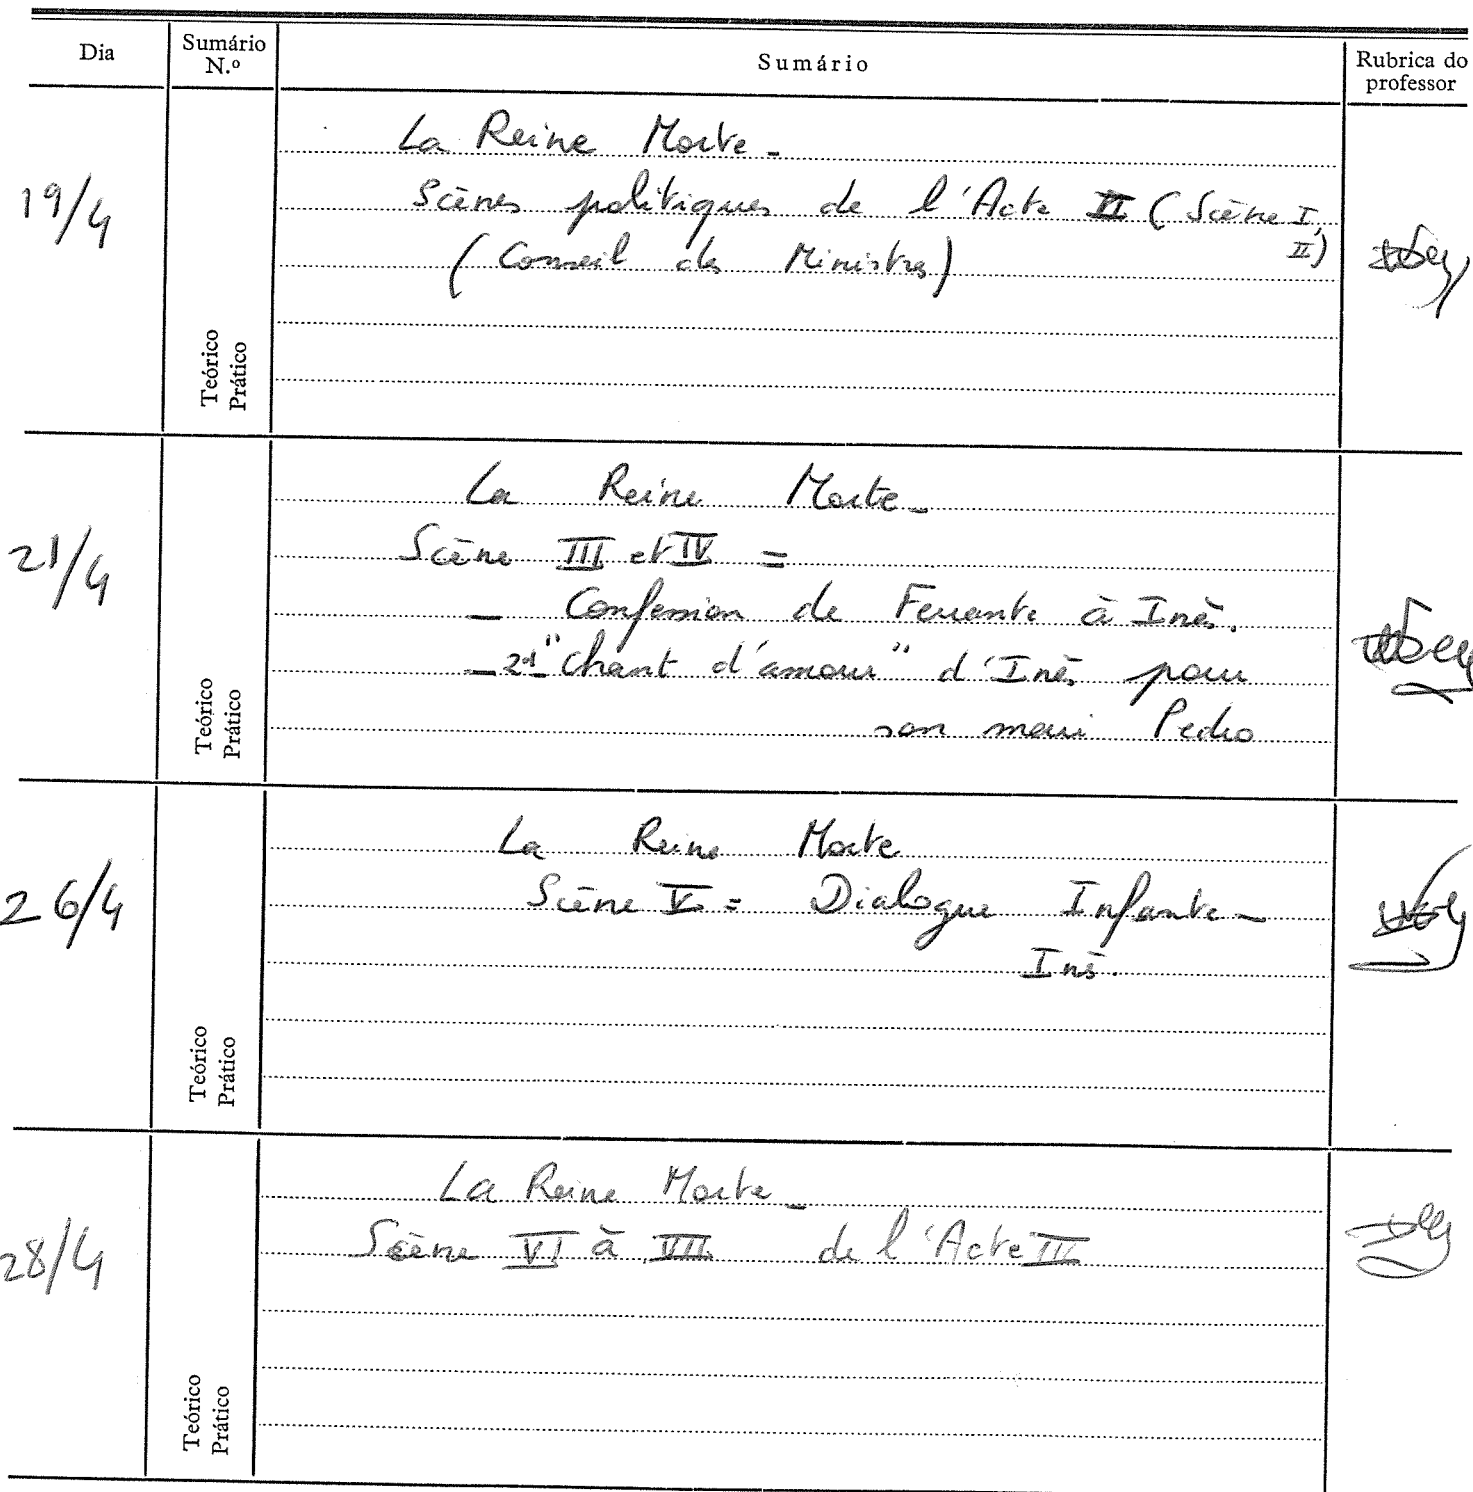 Dia
Sumário N.º
Sumário
Rubrica do professor
19/4
Teórico
Prático
La Reine Morte -
Scènes politiques de l'Acte II (Scène I, II)
(Conseil des Ministres)
21/4
Teórico
Prático
La Reine Morte -
Scène III et IV =
- Confession de Ferrante à Inès.
- "Chant d'amour" d'Inès pour
son mari Pedro
26/4
Teórico
Prático
La Reine Morte
Scène V = Dialogue Infante -
Inès.
28/4
Teórico
Prático
La Reine Morte -
Scène VI à VII de l'Acte